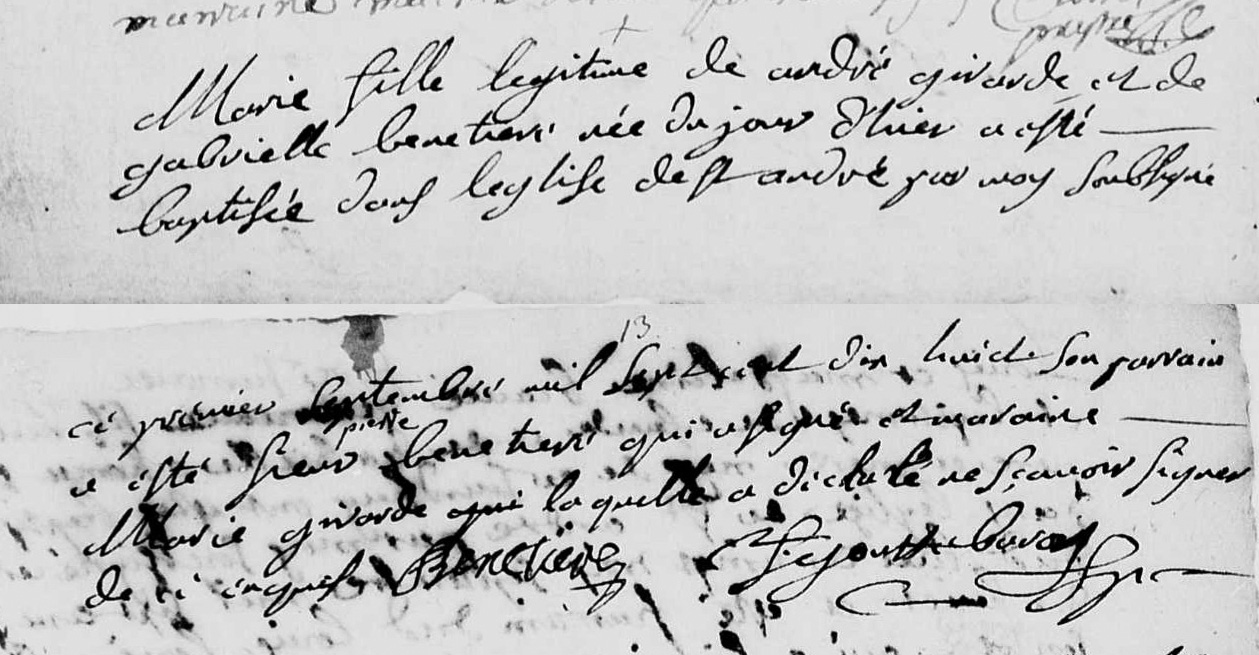 marraine
Marie fille legitime de andré girarde et de
gabrielle benetiere née du jour d'hier a esté
baptisée dans leglise de st andré par moy soubsigné
13
ce premier septembre mil sept cent dix huict son parrain
a esté sieur pierre benetiere qui a signé et maraine
Marie girarde qui laquelle a declaré ne sçavoir signer
de ce enquise Benetiere